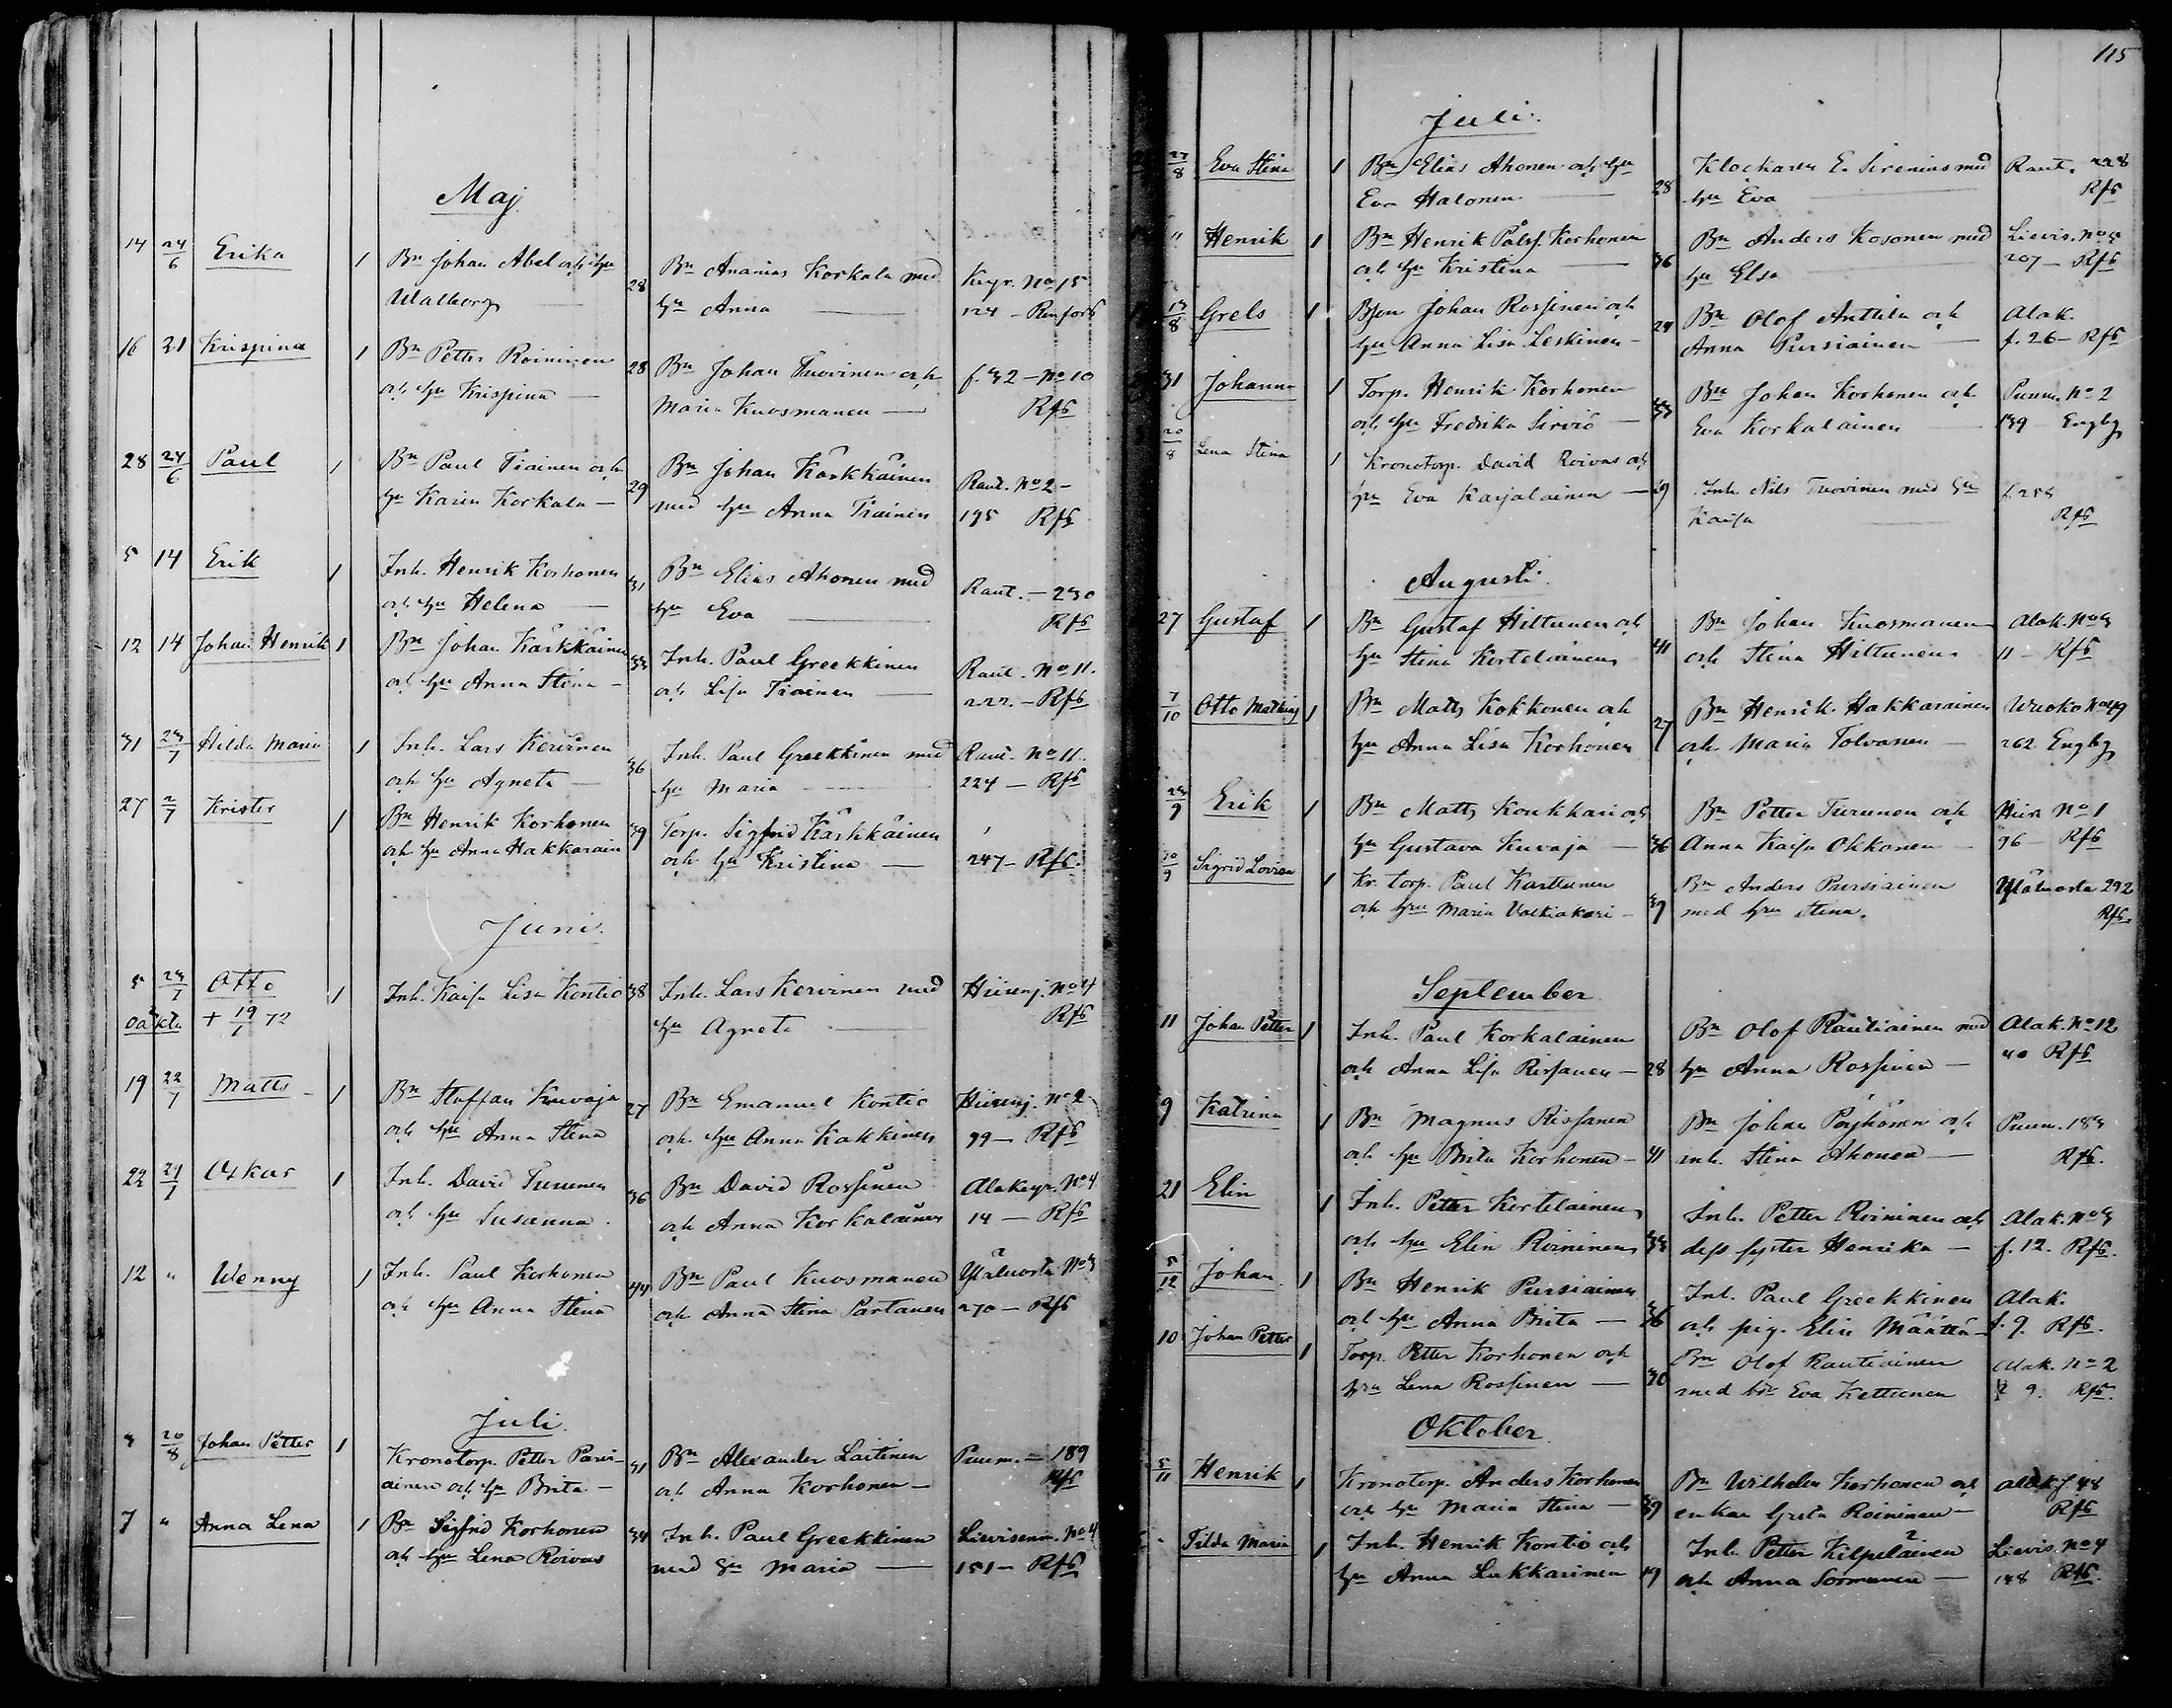 Maj
14 24/6 Erika 1 Bn Johan Abel och hu 28 Bn Ananias Korkala med Keyr. No 15
Walborg hu Anna 124 - Renfors
16 21 Krispina 1 Bn Petter Roininen 28 Bn Johan Tuovinen och f. 32 - No 10
och hu Krispina Maria Kuosmanen Rfs
28 24/6 Paul 1 Bn Paul Tiainen och 29 Bn Johan Kärkkäinen Raut. No 2 -
hu Karin Korkala med hu Anna Tiainen 195 Rfs
5 14 Erik 1 Inh. Henrik Korhonen 31 Bn Elias Ahonen med Raut. - 230
och hu Helena hu Eva Rfs
12 14 Johan Henrik 1 Bn Johan Kärkkäinen 33 Inh. Paul Greekkinen Raut. No 11.
och hu Anna Stina och Lisa Tiainen 222. - Rfs
31 23/7 Hilda Maria 1 Inh. Lars Kervinen 36 Inh. Paul Greekkinen med Raut. No 11.
och hu Agneta hu Maria 224 - Rfs
27 2/7 Krister 1 Bn Henrik Korhonen 39 Torp. Sigfrid Kärkkäinen
och hu Anna Hakkarain och hu Kristina 247 - Rfs.
Juni.
5 23/7 Otto 1 Inh. Kaisa Lisa Kontio 38 Inh. Lars Kervinen med Hiisenj. No 4
oäkta + 19/1 72 hu Agneta Rfs
19 22/7 Matts 1 Bn Staffan Kuvaja 27 Bn Emanuel Kontio Hiisenj. No 2
och hu Anna Stina och hu Anna Kakkinen 99 - Rfs
22 29/7 Oskar 1 Inh. David Turunen 36 Bn David Rossinen Alakeyr. No 4
och hu Susanna. och Anna Korkalainen 14 - Rfs
12 " Wenny 1 Inh. Paul Korhonen 44 Bn Paul Kuosmanen Ylälvosta No 3
och hu Anna Stina och Anna Stina Partanen 270 - Rfs
Juli.
3 20/8 Johan Petter 1 Kronotorp. Petter Parvi- 31 Bn Alexander Laitinen Puum. - 189
ainen och hu Brita - och Anna Korhonen - Rfs
7 " Anna Lena 1 Bn Sigfrid Korhonen 34 Inh. Paul Greekkinen Lievisenm. No 4
och hu Lena Roivas med hu Maria 151 - Rfs
115
Juli.
27/8 Eva Stina 1 Bn Elias Ahonen och hu 28 Klockaren E. Sirenius med Raut. 228
Eva Halonen hu Eva Rfs
" Henrik 1 Bn Henrik Pålsf. Korhonen 36 Bn Anders Kosonen med Lievis. No
och hu Kristina hu Elsa 207 - Rfs
13/8 Grels 1 Bson Johan Rossinen och 24 Bn Olof Anttila och Alak.
hu Anna Lisa Leskinen - Anna Pursiainen f. 26 - Rfs
31 Johanna 1 Torp. Henrik Korhonen 33 Bn Johan Korhonen och Puum. No 2
och hu Fredrika Sirviö Eva Korkalainen 139 - Engbg
20/8 Lena Stina 1 Kronotorp. David Roivas och
hu Eva Karjalainen - 29 Inh. Nils Tuovinen med hu f. 258
Kaisa Rfs
Augusti.
27 Gustaf 1 Bn Gustaf Hiltunen och 41 Bn Johan Kuosmanen Alak. No 3
hu Stina Kortelainen och Stina Hiltunen 11 - Rfs
7/10 Otto Mathias 1 Bn Matts Kokkonen och 27 Bn Henrik Hakkarainen Wuoko No 49
hu Anna Lisa Korhonen och Maria Tolvanen 262 Engbg
23/9 Erik 1 Bn Matts Koukkari och Bn Petter Turunen och Hiisi No 1
hu Gustava Kuvaja - 36 Anna Kaisa Okkonen 96 - Rfs
10/9 Sigrid Lovisa 1 Kr. torp. Paul Karttunen Bn Anders Pursiainen Ylälvosta 292
och hu Maria Valkiakari - 39 med hu Stina. Rfs.
September
11 Johan Petter 1 Inh. Paul Korkalainen Bn Olof Rautiainen med Alak. No 12
och Anna Lisa Rissanen - 28 hu Anna Rossinen 40 Rfs
9 Katrina 1 Bn Magnus Rissanen Bn Johan Pöyhönen och Puum. 183
och hu Brita Korhonen - 41 inh. Stina Ahonen Rfs.
21 Elin 1 Inh. Petter Kortelainen Inh. Petter Roininen och Alak. No 3
och hu Elin Roininen 33 dess syster Henrika - f. 12. Rfs.
5/12 Johan 1 Bn Henrik Pursiainen Inh. Paul Greekkinen Alak.
och hu Anna Brita - 36 och pig. Elin Määttä - f. 9. Rfs.
10 Johan Petter 1 Torp. Petter Korhonen och Bn Olof Rautiainen Alak. No 2
hu Lena Rossinen - 30 med hu Eva Kettunen 9. Rfs.
Oktober
5/11 Henrik 1 Kronotorp. Anders Korhonen Bn Wilhelm Korhonen och Alak f. 48
och hu Maria Stina - 39 enkan Greta Roininen - Rfs
" Tilda Maria 1 Inh. Henrik Kontio och Inh. Petter Kilpeläinen Lievis. No 4
hu Anna Lukkarinen 29 och Anna Sormunen - 148 Rfs.